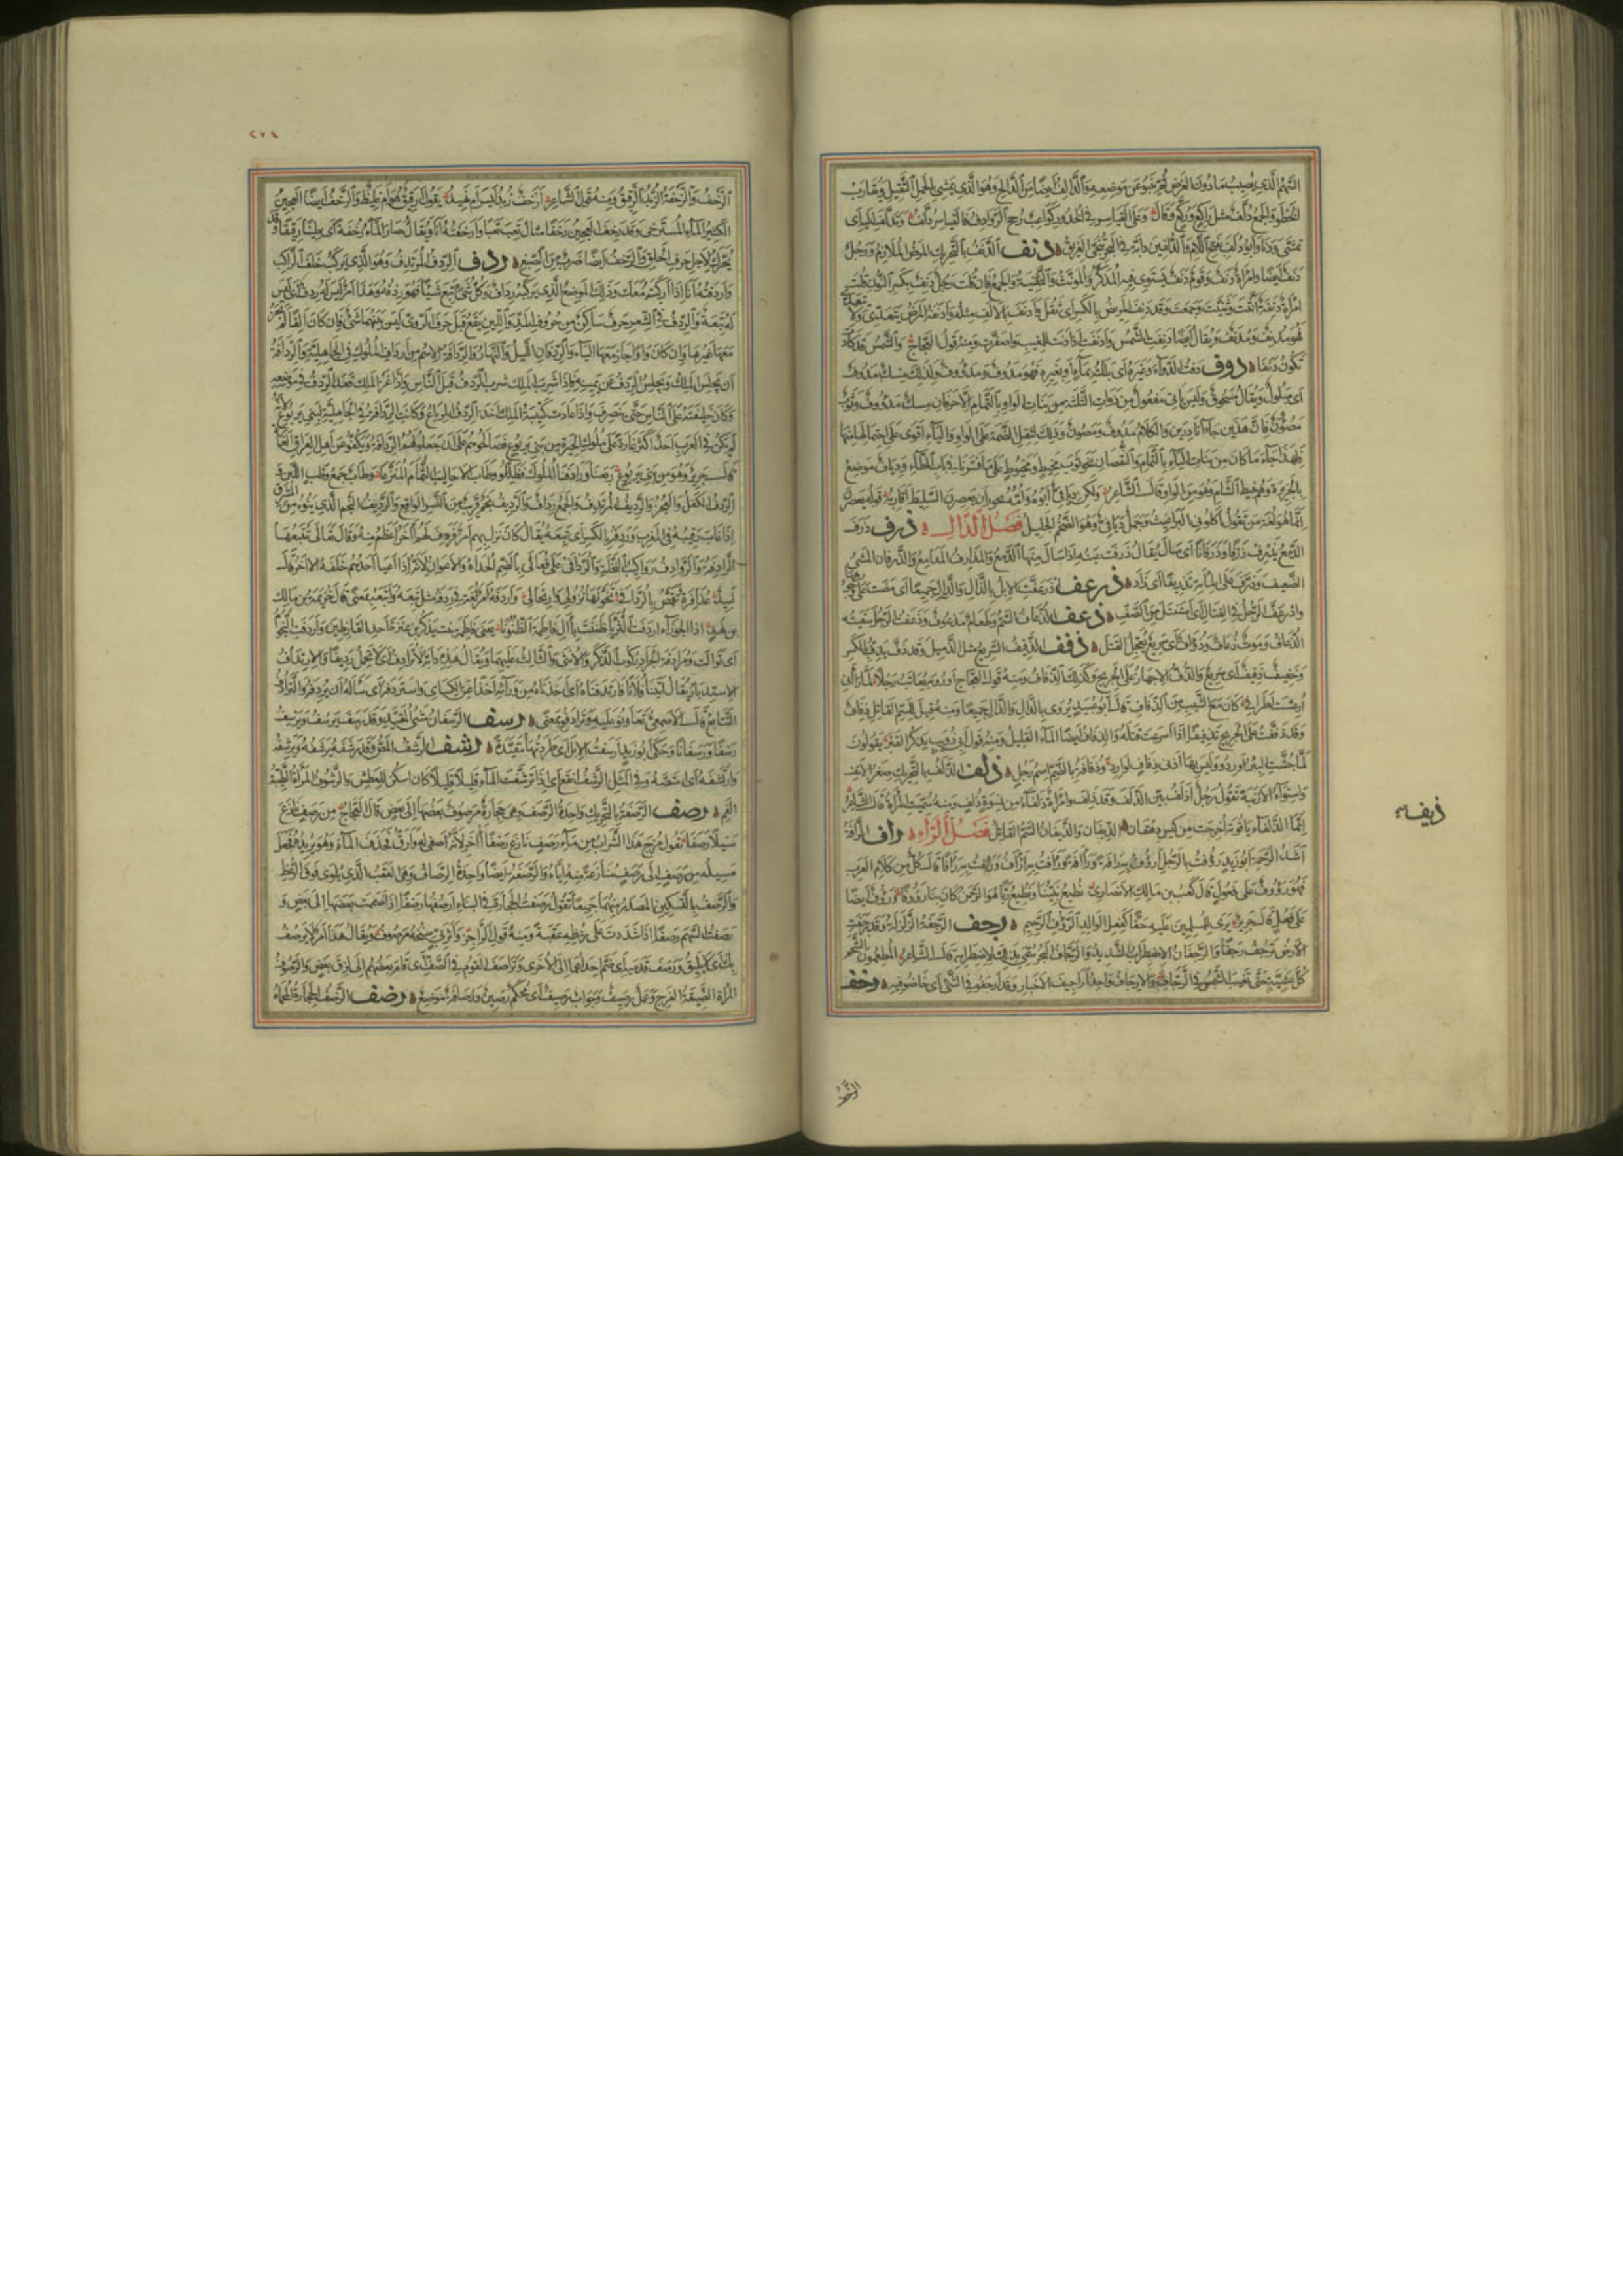 السهم الذي يصيب ما دون الغرض ثم ينبو عن موضعه والدالف ايضا مثل الدالح وهو الذي يمشي بالحمل الثقيل ويقارب
الخطو والجمع دلف مثل راكع وركع وقال وعلى القياسر في الخدور كواعب رجح الروادف فالقياسر دلف وتدلف اليه اي
تمشى ودنا وابو دلف بفتح اللام والدلفين دابة في البحر تنجي الغريق دنف الدنف بالتحريك المرض الملازم ورجل
دنف ايضا وامراة دنف وقوم دنف يستوي فيه المذكر والمونث والتثنية والجمع فان قلت رجل دنف بكسر النون قلت
امراة دنفة انثت وثنيت وجمعت وقد دنف المريض بالكسر اي ثقل وادنف بالالف مثله وادنفه المرض يتعدى ولا يتعدى
فهو مدنف ومدنف ويقال ايضا دنفت الشمس وادنفت اذا دنت للمغيب واصفرت ومنه قول العجاج والشمس قد كادت
تكون دنفا دوف دفت الدواء وغيره اي بللته بماء او بغيره فهو مدوف ومدووف وكذلك مسك مدوف
اي مبلول ويقال مسحوق وليس ياتي مفعول من ذوات الثلثة من بنات الواو بالتمام الا حرفان مسك مدووف وثوب
مصوون فان هذين جاءا نادرين والكلام مدوف ومصون وذلك لثقل الضمة على الواو والياء اقوى على احتمالها منها
فلهذا جاء ما كان من بنات الياء بالتمام والنقصان نحو ثوب مخيط ومخيوط على ما فسرناه في باب الطاء ودياف موضع
بالجزيرة وهم نبيط الشام وهو من الواو قال الشاعر ولكن ديافي ابوه وامه بحوران يعصرن السليط اقاربه قوله يعصرن
انما هو لغة من يقول اكلوني البراغيث وجمل ديافي وهو الضخم الجليل فصل الذال ذرف ذرف
الدمع يذرف ذرفا وذرفانا اي سال يقال ذرفت عينه اذا سال منها الدمع والمذارف المدامع والذرفان المشي
الضعيف وذرف على المائة تذريفا اي زاد ذرعف اذرعفت الابل بالذال والدال جميعا اي مضت على وجوهها
واذرعف الرجل في القتال اي استنتل من الصف ذعف الذعاف السم وطعام مذعوف وذعفت الرجل سقيته
الذعاف وموت ذعاف وذواف اي سريع يعجل القتل ذفف الذفيف السريع مثل الذميل وقد ذف يذف بالكسر
وخفيف ذفيف اي سريع والذف الاجهاز على الجريح وكذلك الذفاف ومنه قول العجاج او روبة يعاتب رجلا لما راني
ارعشت اطرافي كان مع الشيب من الذفاف قال ابو عبيد يروى بالدال والذال جميعا ومنه قيل للسم القاتل ذفاف
وقد ذففت على الجريح تذفيفا اذا اسرعت قتله والذفاف ايضا الماء القليل ومنه قول ابي ذويب يذكر القبر يقولون
لما جشت البئر اوردوا وليس بها ادنى ذفاف لوارد وذفافة بالضم اسم رجل ذلف الذلف بالتحريك صغر الانف
واستواء الارنبة تقول رجل اذلف بين الذلف وقد ذلف وامراة ذلفاء من نسوة ذلف ومنه سميت المراة قال الشاعر
انما الذلفاء ياقوتة اخرجت من كيس دهقان الذيفان والذيفان السم القاتل فصل الراء راف الرافة
اشد الرحمة ابو زيد رؤفت بالرجل ارؤف به رافة ورآفة ورافت به اراف ورئفت به رافا قال كل من كلام العرب
فهو رؤوف على فعول قال كعب بن مالك الانصاري نطيع نبينا ونطيع ربا هو الرحمن كان بنا رؤوفا ورؤف ايضا
على فعل قال جرير يرى للمسلمين عليه حقا كفعل الوالد الرؤف الرحيم رجف الرجفة الزلزلة وقد رجفت
الارض ترجف رجفا والرجفان الاضطراب الشديد والرجاف البحر سمي بذلك لاضطرابه قال الشاعر المطعمون الشحم
كل عشية حتى تغيب الشمس في الرجاف والارجاف واحد اراجيف الاخبار وقد ارجفوا في الشيء اي خاضوا فيه رخف
ذيفه
الرخف
٢٧٤
الرخف والرخفة الزبد الرقيق ومنه قول الشاعر ارخف زبد ايسر ام نهيد يقول ارقيق هو ام غليظ والرخف ايضا العجين
الكثير الماء المسترخي وقد رخف العجين رخفا مثال تعب تعبا وارخفته انا ويقال صار الماء رخفة اي طينا رقيقا وقد
يحرك لاجل حرف الحلق والرخف ايضا ضرب من الصبغ ردف الردف المرتدف وهو الذي يركب خلف الراكب
واردفته انا اذا اركبته معك وذلك الموضع الذي يركبه رداف وكل شيء تبع شيئا فهو ردفه وهذا امر ليس له ردف اي ليس
له تبعة والردف في الشعر حرف ساكن من حروف المد واللين يقع قبل حرف الروي ليس بينهما شيء فان كان الفا لم يجز
معها غيرها وان كان واوا جاز معها الياء والردفان الليل والنهار والردافة الاسم من ارداف الملوك في الجاهلية والردافة
ان يجلس الملك ويجلس الردف عن يمينه فاذا شرب الملك شرب الردف قبل الناس واذا غزا الملك قعد الردف في موضعه
وكان خليفته على الناس حتى ينصرف واذا عادت كتيبة الملك اخذ الردف المرباع وكانت الردافة في الجاهلية لبني يربوع لانه
لم يكن في العرب احد اكثر غارة على ملوك الحيرة من بني يربوع فصالحوهم على ان جعلوا لهم الردافة ويكفوا عن اهل العراق الغارة
قال جرير وهو من بني يربوع ربعنا واردفنا الملوك فظللوا وطاب الاحاليب الثمام المنزعا وطاب جمع وطب اللبن و
الردف الكفل والعجز والرديف المرتدف والجمع رداف والرديف نجم قريب من النسر الواقع والرديف النجم الذي ينوء من المشرق
اذا غاب رقيبه في المغرب وردفه بالكسر اي تبعه يقال كان نزل بهم امر فردف لهم اخر اعظم منه وقال تعالى تتبعها
الرادفة والروادف رواكيب النخلة والردافى على فعالى بالضم الحداة والاعوان لانه اذا اعيا احدهم خلفه الاخر قال
لبيد عذافرة تقمص بالردافى تخونها نزولي وارتحالي واردفه امر لغة في ردفه مثل تبعه واتبعه بمعنى قال خزيمة بن مالك
بن نهد اذا الجوزاء اردفت الثريا ظننت بال فاطمة الظنونا يعني فاطمة بنت يذكر بن عنزة احد القارظين واردفت النجوم
اي توالت ومرادفة الجراد ركوب الذكر والانثى والثالث عليهما ويقال هذه دابة لا ترادف اي لا تحمل رديفا والارتداف
الاستدبار يقال اتينا فلانا فارتدفناه اي اخذناه من ورائه اخذا عن الكسائي واستردفه اي ساله ان يردفه والترادف
التتابع قال الاصمعي تعاونوا عليه وترادفوا بمعنى رسف الرسفان مشي المقيد وقد رسف يرسف ويرسف
رسفا ورسفانا وحكى ابو زيد ارسفت الابل اي طردتها مقيدة رشف الرشف المص وقد رشفه يرشفه ويرشفه
وارتشفه اي امتصه وفي المثل الرشف انقع اي اذا ترشفت الماء قليلا قليلا كان اسكن للعطش والرشوف المراة الطيبة
الفم رصف الرصفة بالتحريك واحدة الرصف وهي حجارة مرصوف بعضها الى بعض قال العجاج من رصف نازع
سيلا رصفا يقول مزج هذا الشراب من ماء رصف نازع رصفا اخر لانه اصفى له وارق فحذف الماء وهو يريده فجعل
مسيله من رصف الى رصف منازعة منه اياه والرصفة ايضا واحدة الرصاف وهي العقب الذي يلوى فوق الرعظ
والرصف بالتسكين المصدر منهما جميعا تقول رصفت الحجارة في البناء ارصفها رصفا اذا ضممت بعضها الى بعض و
رصفت السهم رصفا اذا شددت على رعظه عقبة ومنه قول الراجز واثربي سنخه مرصوف ويقال هذا امر لا يرصف
بك اي لا يليق ورصف قدميه اي ضم احداهما الى الاخرى وتراصف القوم في الصف اي قام بعضهم الى لزق بعض والرصوف
المراة الضيقة الفرج وعمل رصيف وجواب رصيف اي محكم رصين ورصافة موضع رضف الرضف الحجارة المحماة